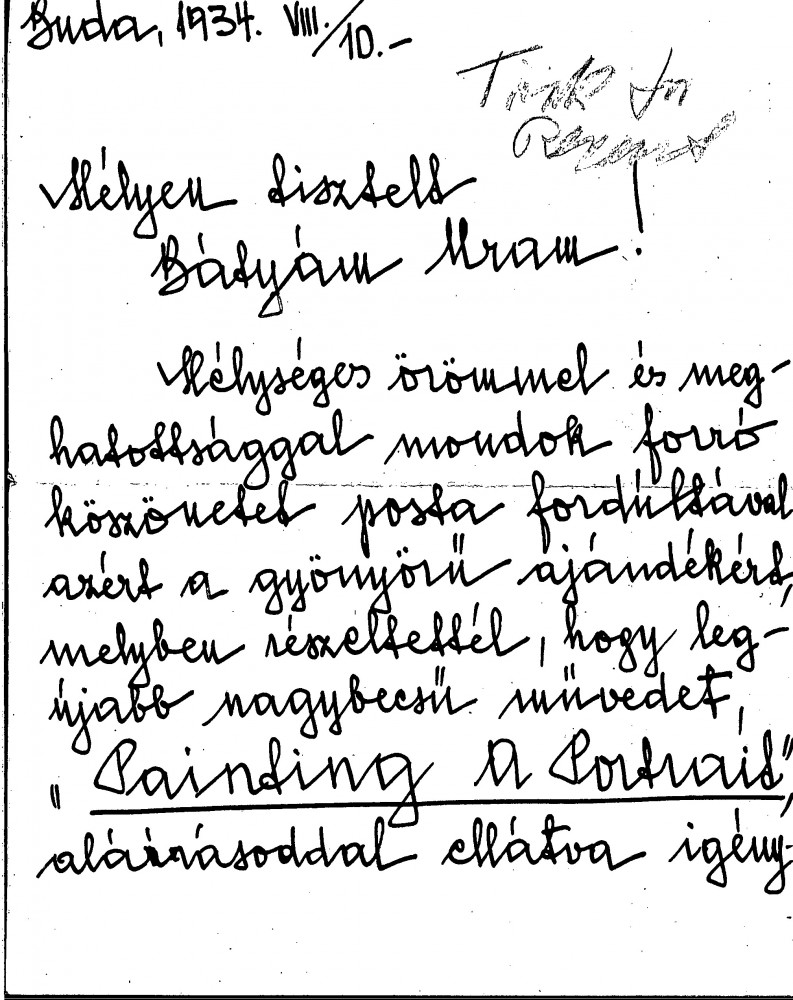 Buda, 1934. VIII./10.-
Mélyen tisztelt
Bátyám Uram!
Mélységes örömmel és meg-
hatottsággal mondok forró
köszönetet posta fordúltával
azért a gyönyörű ajándékért,
melyben részeltettél, hogy leg-
újabb nagybecsű művedet,
"Painting A Portrait",
aláírásoddal ellátva igény-